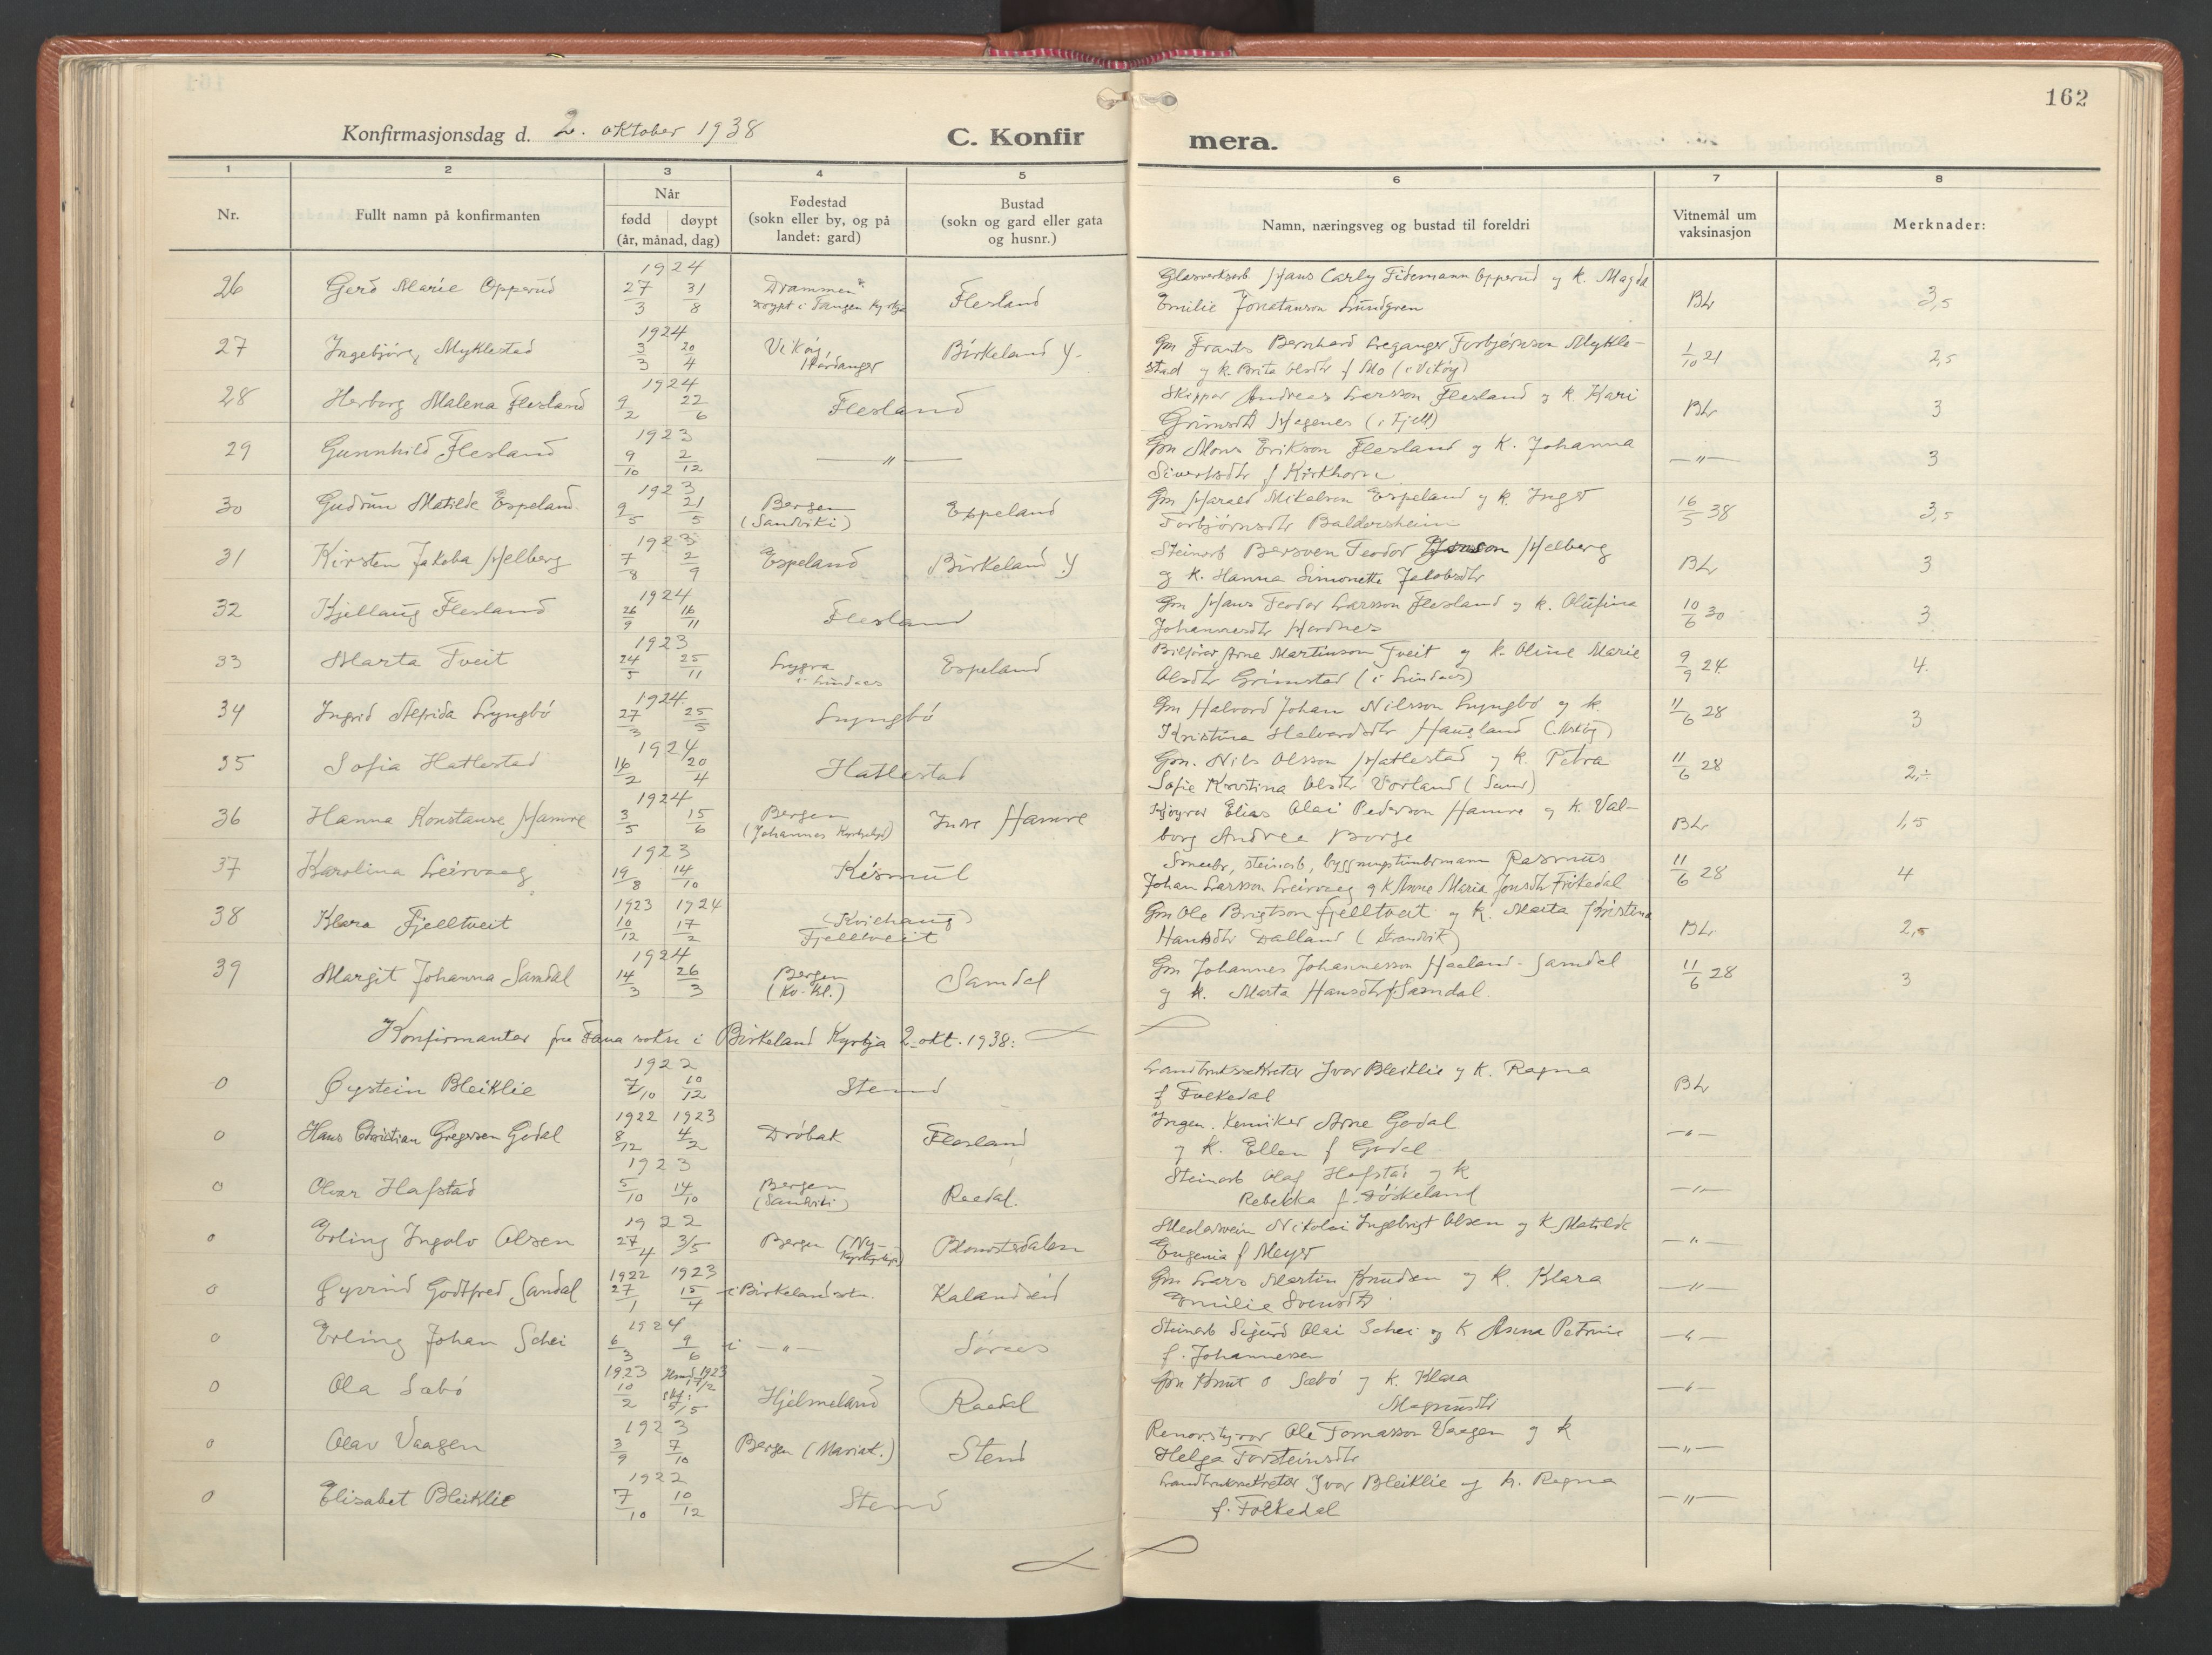 162
Konfirmasjonsdag d. 2. oktober 1938
C. Konfir mera.
1 2 3 4 5 6 7 8
Nr.
Fullt namn på konfirmanten
Når
fødd døypt
(år, månad, dag)
Fødestad
(sokn eller by, og på
landet: gard)
Bustad
(sokn og gard eller gata
og husnr.)
Namn, næringsveg og bustad til foreldri
Vitnemål um
vaksinasjon
Merknader:
1924
26 Gerd Marie Opperud 27/3 31/8 Drammen Flesland
døypt i Tangen kyrkja
Glasverksarb Hans Carly Tidemann Opperud og k. Magda
Emilie Jonatanson Lundgren BL 3,5
1924
27 Ingebjørg Myklestad 3/3 20/4 Vikøy, Hardanger Birkeland y.
Gm Frants Bernhard Leganger Torbjørnson Mykle-
stad og k. Brita Olsdtr f Mo (i Vikøy) 1/10 21 2,5
1924
28 Herborg Malena Flesland 9/2 22/6 Flesland
Skipper Andreas Larsson Flesland og k. Kari
Grimsdt Hegenes (i Fjell) BL 3
1923
29 Gunnhild Flesland 9/10 2/12 — " —
Gm Mons Erikson Flesland og K. Johanna
Sivertsdtr f Kirkhorn — " — 3
1923
30 Gudrun Matilde Espeland 9/5 21/5 Bergen (Sandviki) Espeland
Gm Harald Mikalson Espeland og k. Inger
Torbjørnsdtr Baldersheim 16/5 38 3,5
1923
31 Kirsten Jakoba Helberg 7/8 2/9 Espeland Birkeland y
Steinarb Bersven Teodor Helberg
og k. Hanna Simonette Jakobsdtr BL 3
1924
32 Kjellaug Flesland 26/9 16/11 Flesland
Gm Hans Teodor Larsson Flesland og k. Olufina
Johannesdtr Hordnes 10/6 30 3
1923
33 Marta Tveit 24/5 25/11 Lygra i Lindaas Espeland
Bilførar Arne Martinson Tveit og k. Oline Marie
Olsdtr Grimstad (i Lindaas) 9/9 24 4.
1924
34 Ingrid Alfrida Lyngbø 27/3 25/5 Lyngbø
Gm Halvord Johan Nilsson Lyngbø og k.
Kristina Halvardsdtr Haugland (Askøy) 11/6 28 3
1924
35 Sofia Hatlestad 16/2 20/4 Hatlestad
Gm. Nils Olsson Hatlestad og k. Petra
Sofie Kristina Olsdtr Vorland (Sund) 11/6 28 2,÷
1924
36 Hanna Konstanse Hamre 3/5 15/6 Bergen (Johannes Kyrkjelyd) Indre Hamre
Kjøyrar Elias Olai Pederson Hamre og k. Val-
borg Andrea Borge BL 1,5
1923
37 Karolina Leirvaag 19/8 14/10 Kismul
steinarb, byggningstimbrmann Rasmus
Johan Larsson Leirvaag og k Anne Maria Jonsdtr Frikedal 11/6 28 4
1923 1924
38 Klara Fjelltveit 10/12 17/2 (Kvithaug) Fjelltveit
Gm Ole Brigtson Fjelltveit og k. Marta Kristina
Hansdtr Dalland (Strandvik) BL 2,5
1924
39 Margit Johanna Samdal 14/3 26/3 Bergen (Kv. Kl.) Samdal
Gm Johannes Johannesson Haaland-Samdal
og k. Marta Hansdtr f Samdal. 11/6 28 3
Konfirmantar fra Fana sokn i Birkeland Kyrkja 2. okt. 1938:
1922
0 Øystein Bleiklie 7/10 10/12 Stend
Landbrukssekretær Ivar Bleiklie og K. Ragna
f Folkedal BL
1922 1923
0 Hans Christian Gregersen Godal 8/12 4/2 Drøbak Flesland
Ingen. Kemiker Arne Godal
og K. Ellen f Godal — " —
1923
0 Olvar Hafstad 5/10 14/10 Bergen (Sandviki) Raadal.
Steinarb Olaf Hafstad og k
Rebekka f. Døskeland — " —
1922
0 Erling Ingolv Olsen 27/4 3/5 Bergen (Ny-Kyrkjelyd) Blomsterdalen
Nikolai Ingebrigt Olsen og K Matilde
Eugenia f Meyer — " —
1922 1923
0 Øyvind Godtfred Sandal 27/1 15/4 i Birkeland sokn. Kalandseid
Gm Lars Martin Knudsen og K. Klara
Emilie Svensdtr — " —
1924
0 Erling Johan Schei 6/3 9/6 i — " — Søraas
Steinarb Sigurd Olai Schei og K Anna Petrine
f. Johannessen — " —
1923
0 Ola Sæbø 10/2 5/5 Hjelmeland Raadal
Gm Knut O Sæbø og K. Klara
Magnusdtr — " —
1923
0 Olav Vaagen 3/9 7/10 Bergen (Mariak.) Stend
Renov.styrar Ole Tomasson Vaagen og k
Helga Torsteinsdtr — " —
1922
0 Elisabet Bleiklie 7/10 10/12 Stend
Landbrukssekretær Ivar Bleiklie og k. Ragna
f. Folkedal — " —